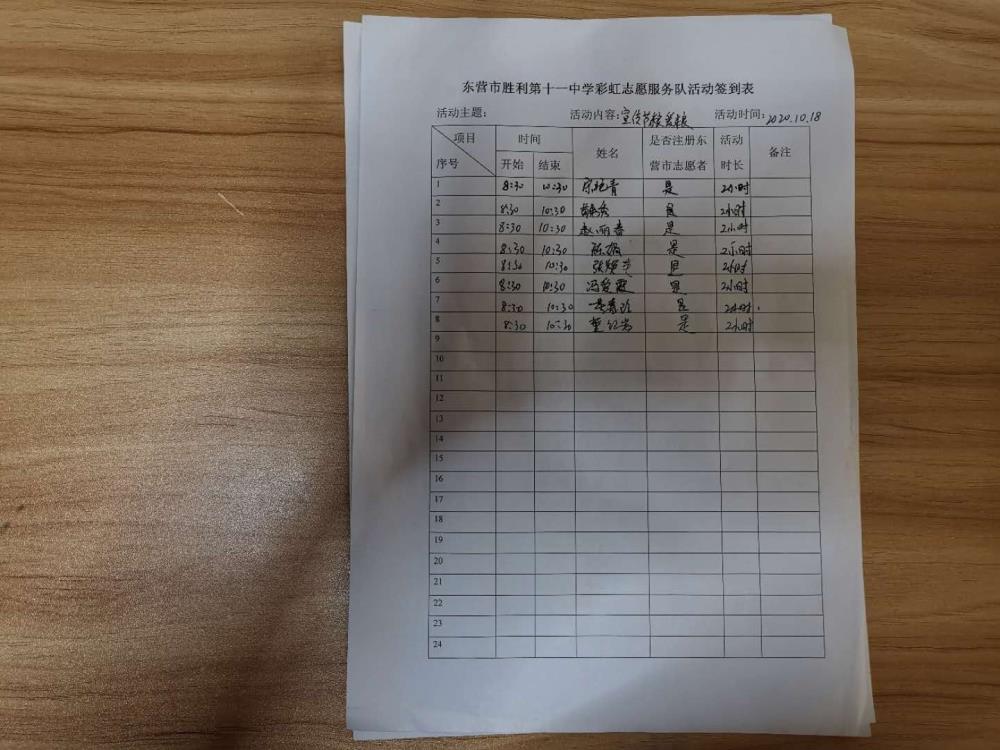 东营市胜利第十一中学彩虹志愿服务队活动签到表
活动主题： 活动内容：宣传节粮爱粮 活动时间：2020.10.18
项目 序号 时间 开始 结束 姓名 是否注册东营市志愿者 活动时长 备注
1 8:30 10:30 是 2小时
2 8:30 10:30 是 2小时
3 8:30 10:30 赵丽春 是 2小时
4 8:30 10:30 是 2小时
5 8:30 10:30 是 2小时
6 8:30 10:30 冯爱霞 是 2小时
7 8:30 10:30 是 2小时
8 8:30 10:30 是 2小时
9
10
11
12
13
14
15
16
17
18
19
20
21
22
23
24